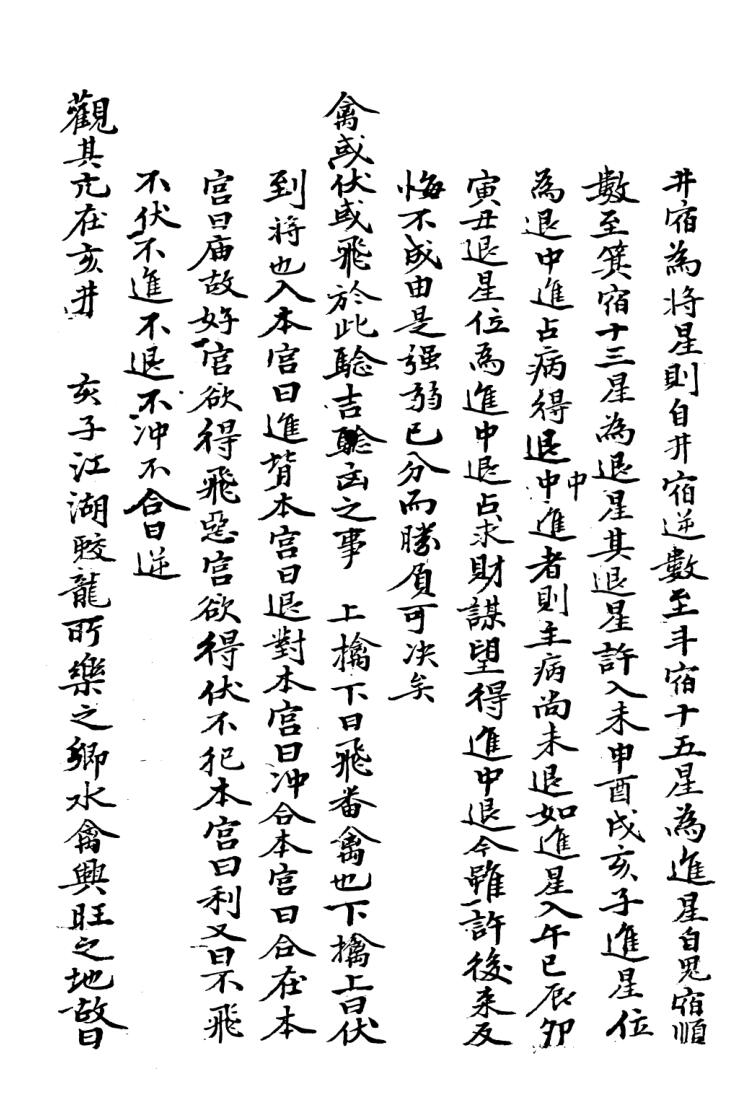 井宿為将星則自井宿逆數至斗宿十五星為進星自鬼宿順
數至箕宿十三星為退星其退星許入未申酉戌亥子進星位
為退中進占病得退中中進者則主病尚未退如進星入午巳辰卯
寅丑退星位為進中退占求財謀望得進中退今雖許後来反
悔不成由是强弱已分而勝負可决矣
禽或伏或飛於此騐吉騐凶之事　上擒下曰飛番禽也下擒上曰伏
到将也入本宫曰進背本宫曰退對本宫曰冲合本宫曰合在本
宫曰庙故好宫欲得飛惡宫欲得伏不犯本宫曰利又曰不飛
不伏不進不退不冲不合曰逆
觀其亢在亥井　亥子江湖蛟龍所樂之鄉水禽興旺之地故曰